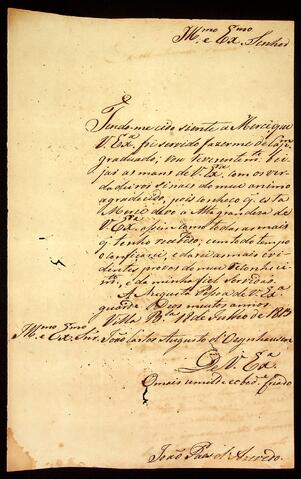 Il.mo e Ex.mo Senhor
Tendo me sido siente a Mercê que
V. Ex.a foi servido fazer me de
graduado; vou reverentem.te bei
jar as maos de V. Ex.a com os ver
dadeiros sinaes do meu animo
agradecido, pois conheço q. esta
Mercê devo a Alta grandeza de
V. Ex.a assim como todas as mais
q. tenho recebido; em todo tempo
confiçarei, e darei as mais evi
dentes provas do meu reconheci
m.to, e da minha fiel servidão.
A Augusta Pessoa de V. Ex.a
guarde Deos muitos annos
Villa B.a 18 de Julho de 1813
Il.mo e Ex.mo Snr. João Carlos Augusto d'Oeynhausen
De V. Ex.a
O mais umilde e obed.e criado
João Paes d'Azevedo.